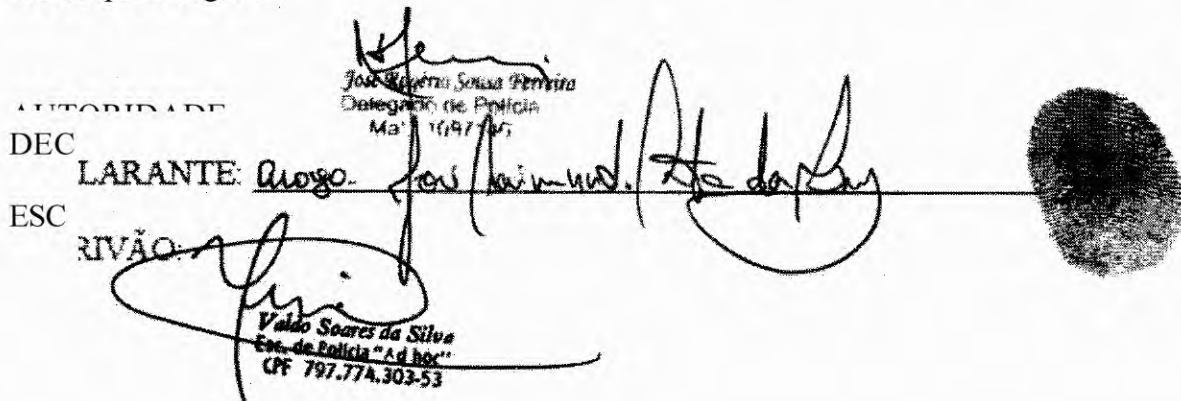 José Rogério Sousa Ferreira
Delegado de Polícia
AUTORIDADE
DEC
LARANTE: arogo. José Raimund. da
ESC
RIVÃO:
Valdo Soares da Silva
Esc. de Polícia "Ad hoc"
CPF 797.774.303-53